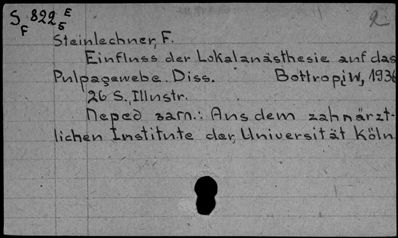 S 822 E
F 5
2
Steinlechner, F.
Einfluss der Lokalanästhesie auf das
Pulpagewebe. Diss. Bottrop i W, 1936
26 S. Illustr.
Перед загл.: Aus dem zahnärzt-
lichen Institute der Universität Köln